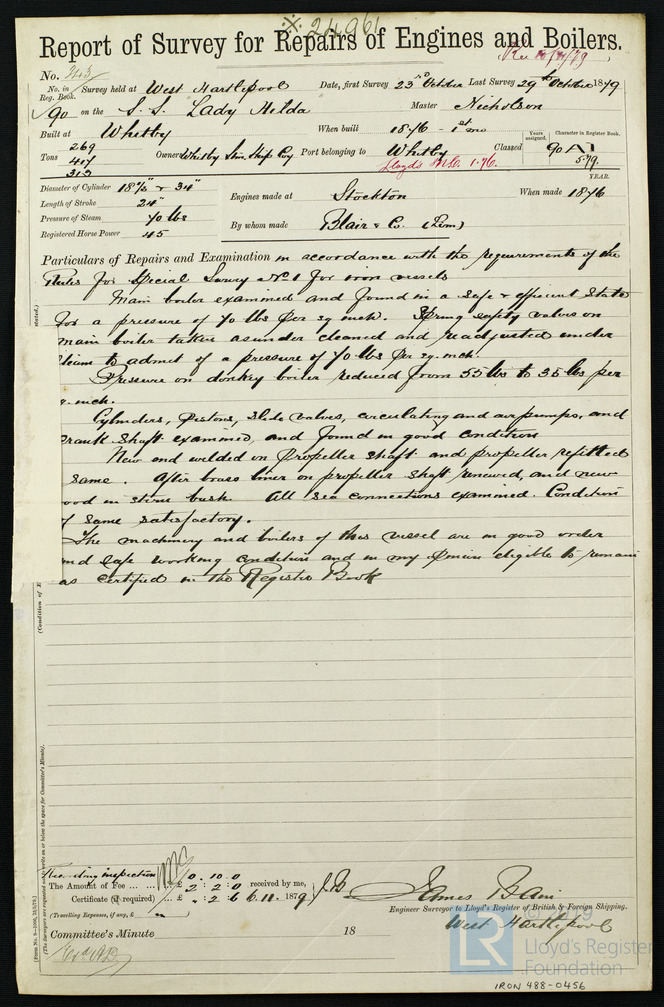 ※ 24961
Report of Survey for Repairs of Engines and Boilers.
No. 343
No. in Reg. Book. Survey held at West Hartlepool Date, first Survey 23rd October Last Survey 29th October 1879
90 on the S.S. Lady Hilda Master Nicholson
Built at Whitby When built 1876 - 1st mo
Years assigned. Character in Register Book.
Tons 269 417 313 Owner Whitby Stm Ship Coy Port belonging to Whitby Classed 90 A1
Lloyd's M.C. 1.76. 5.79.
YEAR.
Diameter of Cylinder 18½" & 34"
Length of Stroke 24"
Pressure of Steam 70 lbs
Registered Horse Power 45
Engines made at Stockton When made 1876
By whom made Blair & Co. (Lim)
Particulars of Repairs and Examination in accordance with the requirements of the
Rules for Special Survey No 1 for iron vessels
Main boiler examined and found in a safe & efficient state
for a pressure of 70 lbs per sq inch. Spring safety valves on
main boiler taken asunder cleaned and readjusted under
steam to admit of a pressure of 70 lbs per sq. inch.
Pressure on donkey boiler reduced from 55 lbs to 35 lbs per
q. inch.
Cylinders, pistons, slide valves, circulating and air pumps, and
crank shaft examined, and found in good condition
New end welded on propeller shaft and propeller refitted
same. After brass liner on propeller shaft renewed, and new
ood in stern bush. All sea connections examined. Condition
f same satisfactory.
The machinery and boilers of this vessel are in good order
nd safe working condition and in my opinion eligible to remain
as certified in the Register Book
(The Surveyors are requested not to write on or below the space for Committee's Minute).
(Form No. 9-1000, 31/3/79.)
inspection £ 0 . 10 . 0
The Amount of Fee ... ... £ 2 : 2 : 0 received by me,
Certificate (if required) ... £ " . 2 . 6 6.11.1879 J.B
(Travelling Expenses, if any, £ " )
James Bain
Engineer Surveyor to Lloyd's Register of British & Foreign Shipping.
West Hartlepool
Committee's Minute 18
LR
Lloyd's Register
Foundation
IRON 488-0456